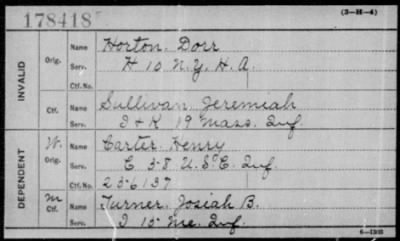 178418
(3-H-4)
INVALID
Orig. Name Horton, Dorr
Serv. H 10 N.Y. H.A.
Ctf. No.
Ctf. Name Sullivan, Jeremiah
Serv. I & K 19 Mass. Inf.
DEPENDENT
W. Orig. Name Carter, Henry
Serv. E 58 U.S.C. Inf.
Ctf. No. 236137
M Ctf. Name Turner, Josiah B.
Serv. I 15 Me. Inf.